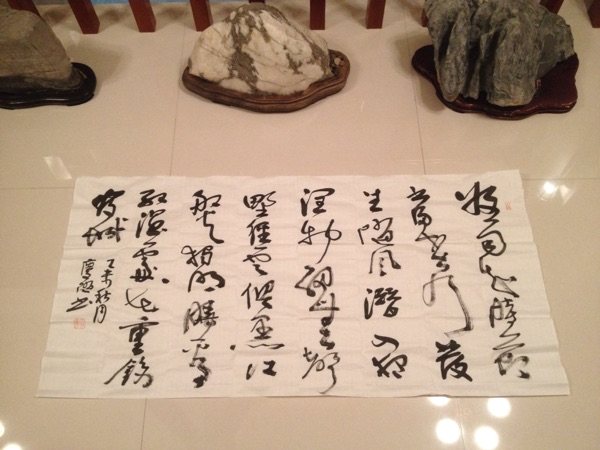 好雨知時節
當春乃發
生随風潛入夜
潤物細無聲
野徑雲俱黑江
船火獨明曉看
紅濕處花重錦
官城
乙未秋月
书